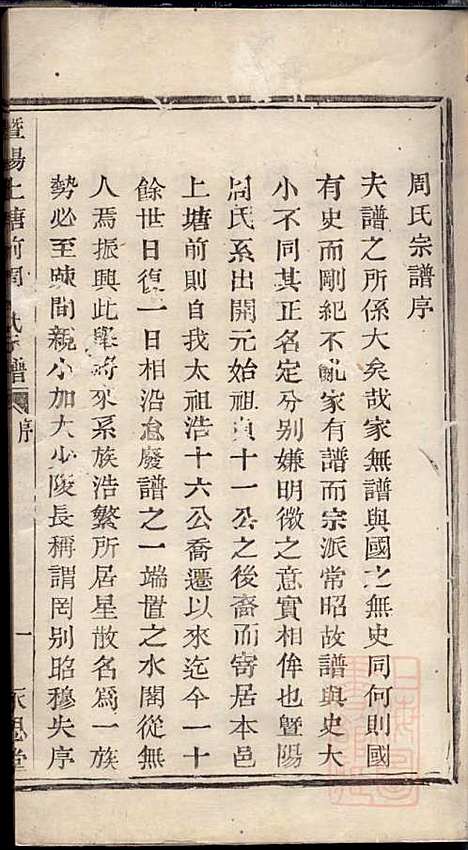 周氏宗譜序
夫譜之所係大矣哉家無譜與國之無史同何則國
有史而剛紀不亂家有譜而宗派常昭故譜與史大
小不同其正名定分別嫌明微之意實相侔也暨陽
周氏系出開元始祖貞十一公之後裔而寄居本邑
上塘前則自我太祖浩十六公喬遷以來迄今一十
餘世日復一日相沿怠廢譜之一端置之水閣從無
人焉振興此舉將來系族浩繁所居星散名爲一族
勢必至踈間親小加大少陵長稱謂罔別昭穆失序
暨陽上塘前周氏宗譜 序 一 永思堂